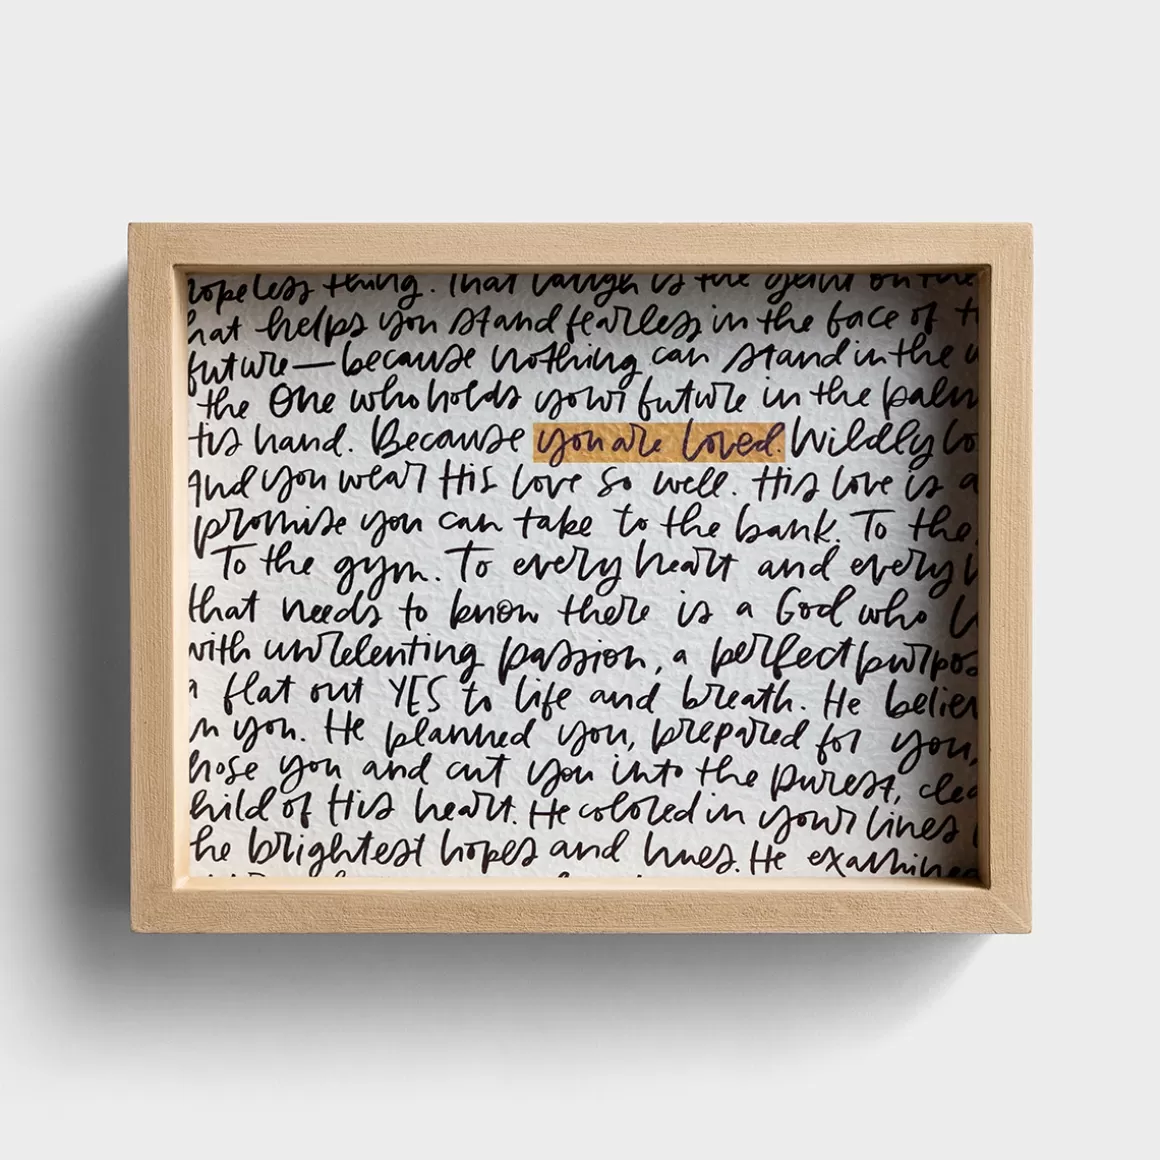 hopeless thing. That laugh is the
hat helps you stand fearless in the face of t
future—because nothing can stand in the w
the One who holds your future in the palm
His hand. Because you are loved. Wildly lo
And you wear His love so well. His love is a
promise you can take to the bank. To the
To the gym. To every heart and every h
that needs to know there is a God who l
with unrelenting passion, a perfect purpos
a flat out YES to life and breath. He believ
in you. He planned you, prepared for you,
hose you and cut you into the purest, clea
hild of His heart. He colored in your lines
he brightest hopes and hues. He examined